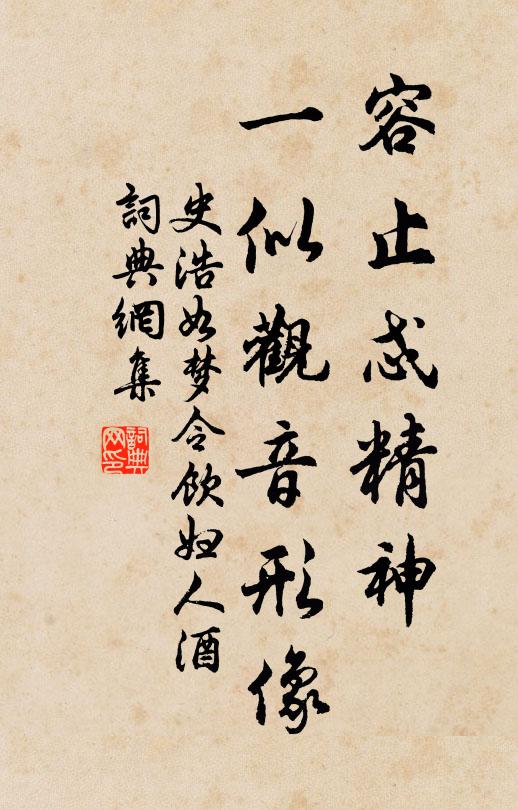 容止忒精神
一似觀音形像
史浩如梦令飲妇人酒
詞典網集
詞典网印